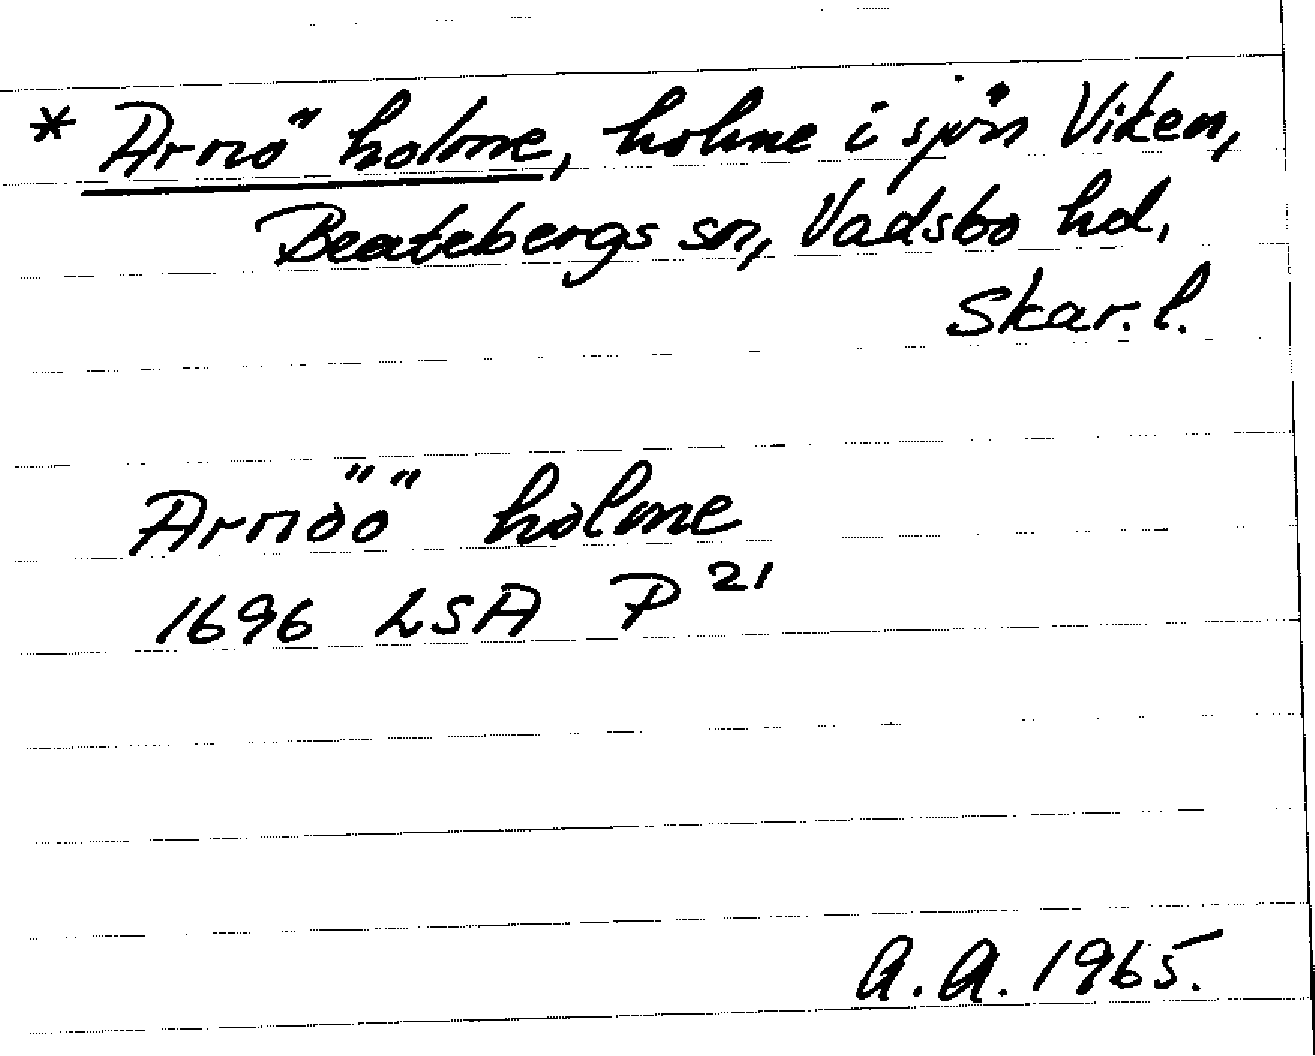 * Arnö holme, holme i sjön Viken,
Beatebergs sn, Vadsbo hd,
Skar. l.
Arnöö holme
1696 LSA P 21
A. A. 1965.